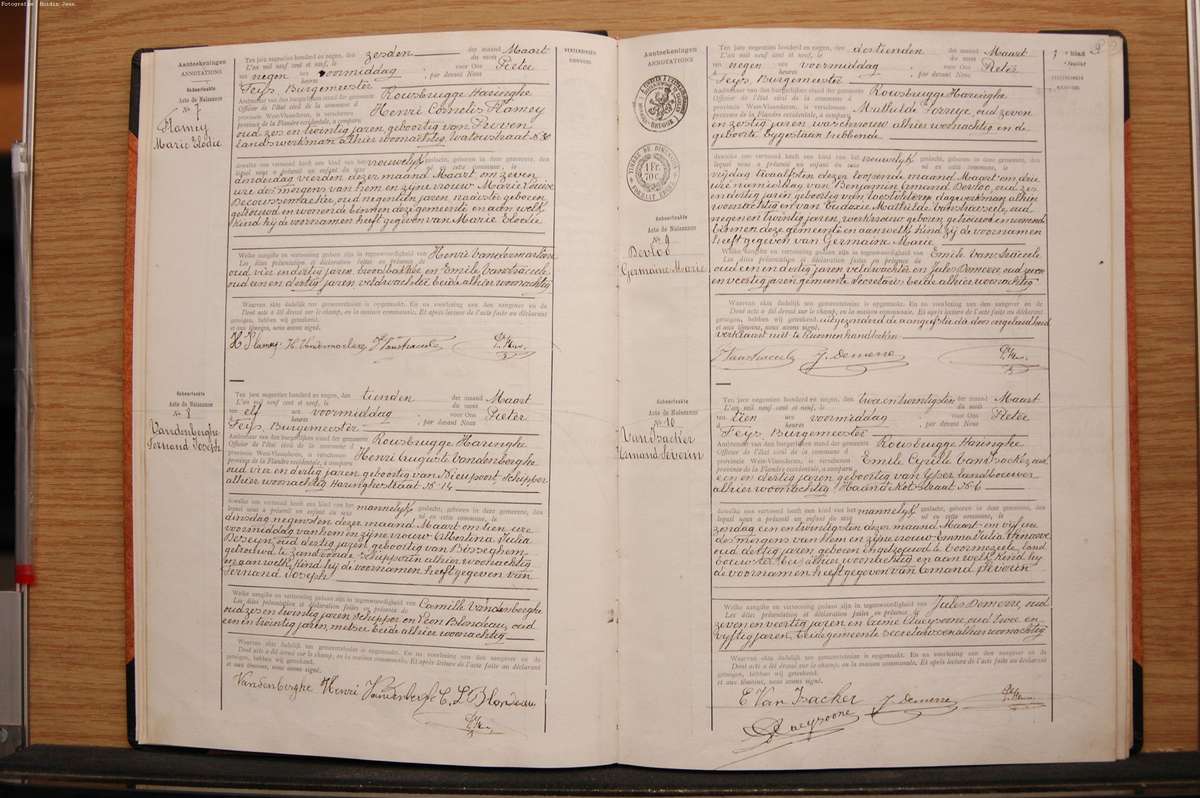 Fotografie: Houdin Jean.
Aanteekeningen
ANNOTATIONS
Geboorteakte
Acte de Naissance
No 7
Flamey
Marie Elodie
Ten jare negentien honderd en negen, den zesden der maand Maart
L'an mil neuf cent et neuf, le du mois
ten negen ure voormiddag voor Ons Pieter
à heures , par devant Nous
Feys, Burgemeester
Ambtenaar van den burgerlijken stand der gemeente Rousbrugge Haringhe
Officier de l'état civil de la commune d
provincie West-Vlaanderen, is verschenen Henri Cornelis Flamey
province de la Flandre occidentale, a comparu
oud zes en twintig jaren, geboortig van Proven
landswerkman alhier woonachtig, Watoustraat No
dewelke ons vertoond heeft een kind van het vrouwelijk geslacht, geboren in deze gemeente, den
lequel nous a présenté un enfant du sexe né en cette commune, le
donderdag vierden dezer maand Maart om zeven
ure des morgens van hem en zijne vrouw Marie Louise
oud negentien jaren, naaister geboren
getrouwd en wonende binnen deze gemeente en aan welk
kind hij de voornamen heeft gegeven van Marie Elodie
Welke aangifte en vertooning gedaan zijn in tegenwoordigheid van Henri Vandermarliere
Les dites présentation et déclaration faites en présence de
oud vier en dertig jaren broodbakker en Emile Vanstraceele
oud een en dertig jaren veldwachter beide alhier woonachtig
Waarvan akte dadelijk ten gemeentehuize is opgemaakt. En na voorlezing aan den aangever en de
Dont acte a été dressé sur le champ, en la maison communale. Et après lecture de l'acte faite au déclarant
getuigen, hebben wij geteekend.
et aux témoins, nous avons signé.
H Flamey H. Vandermarliere
Geboorteakte
Acte de Naissance
No 8
Vandenberghe
Fernand Joseph
Ten jare negentien honderd en negen, den tienden der maand Maart
L'an mil neuf cent et neuf, le du mois
ten elf ure voormiddag voor Ons Pieter
à heures , par devant Nous
Feys, Burgemeester
Ambtenaar van den burgerlijken stand der gemeente Rousbrugge Haringhe
Officier de l'état civil de la commune d
provincie West-Vlaanderen, is verschenen Henri Auguste Vandenberghe
province de la Flandre occidentale, a comparu
oud vier en dertig jaren, geboortig van Nieupoort, schipper
alhier woonachtig Haringhestraat No 14
dewelke ons vertoond heeft een kind van het mannelijk geslacht, geboren in deze gemeente, den
lequel nous a présenté un enfant du sexe né en cette commune, le
dinsdag negensten dezer maand Maart om tien ure
voormiddag van hem en zijne vrouw Albertina Julia
oud dertig jaren geboortig van Bisseghem
getrouwd te Zandvoorde schipperin alhier woonachtig
en aan welk kind hij de voornamen heeft gegeven van
Fernand Joseph
Welke aangifte en vertooning gedaan zijn in tegenwoordigheid van Camille Vandenberghe
Les dites présentation et déclaration faites en présence de
oud zes en twintig jaren schipper en Leon Blondeau oud
een en twintig jaren, metser beide alhier woonachtig
Waarvan akte dadelijk ten gemeentehuize is opgemaakt. En na voorlezing aan den aangever en de
Dont acte a été dressé sur le champ, en la maison communale. Et après lecture de l'acte faite au déclarant
getuigen, hebben wij geteekend.
et aux témoins, nous avons signé.
Vandenberghe Henri Vandenberghe C. L. Blondeau
Aanteekeningen
ANNOTATIONS
Geboorteakte
Acte de Naissance
No 9
Devloo
Germaine Marie
Ten jare negentien honderd en negen, den dertienden der maand Maart
L'an mil neuf cent et neuf, le du mois
ten negen ure voormiddag voor Ons Pieter
à heures , par devant Nous
Feys, Burgemeester
Ambtenaar van den burgerlijken stand der gemeente Rousbrugge Haringhe
Officier de l'état civil de la commune d
provincie West-Vlaanderen, is verschenen Mathilde
province de la Flandre occidentale, a comparu
oud zeven
en zestig jaren waschvrouw alhier woonachtig en de
geboorte bygestaan hebbende
dewelke ons vertoond heeft een kind van het vrouwelijk geslacht, geboren in deze gemeente, den
lequel nous a présenté un enfant du sexe né en cette commune, le
vrijdag twaalfsten dezer loopende maand Maart om drie
ure namiddag van Benjamin Amand Devloo, oud zes
en dertig jaren geboortig van Westvleteren dagwerkman alhier
woonachtig en van Eudoxie Mathilde Vanstraceele, oud
negen en twintig jaren, werkvrouw geboren getrouwd en wonende
binnen deze gemeente en aan welk kind zij de voornamen
heeft gegeven van Germaine Marie
Welke aangifte en vertooning gedaan zijn in tegenwoordigheid van Emile Vanstraceele
Les dites présentation et déclaration faites en présence de
oud een en dertig jaren veldwachter en Jules Demerre oud zeven
en veertig jaren, gemeente secretaris beide alhier woonachtig
Waarvan akte dadelijk ten gemeentehuize is opgemaakt. En na voorlezing aan den aangever en de
Dont acte a été dressé sur le champ, en la maison communale. Et après lecture de l'acte faite au déclarant
getuigen, hebben wij geteekend, uitgezonderd de aangeefster die door ongeleerdheid
et aux témoins, nous avons signé.
verklaart niet te kunnen handteeken
J. Demerre
Geboorteakte
Acte de Naissance
No 10
Van Isacker
Amand Severin
Ten jare negentien honderd en negen, den tweeentwintigsten der maand Maart
L'an mil neuf cent et neuf, le du mois
ten tien ure voormiddag voor Ons Pieter
à heures , par devant Nous
Feys, Burgemeester
Ambtenaar van den burgerlijken stand der gemeente Rousbrugge Haringhe
Officier de l'état civil de la commune d
provincie West-Vlaanderen, is verschenen Emile Cyrille Van Isacker, oud
province de la Flandre occidentale, a comparu
een en dertig jaren, geboortig van landbouwer
alhier woonachtig No 6
dewelke ons vertoond heeft een kind van het mannelijk geslacht, geboren in deze gemeente, den
lequel nous a présenté un enfant du sexe né en cette commune, le
zondag een en twintigsten dezer maand Maart om vijf ure
des morgens van hem en zijne vrouw Emma Julia
oud dertig jaren geboren en getrouwd te Voormezele, land
bouwster alhier woonachtig en aan welk kind hij
de voornamen heeft gegeven van Amand Severin
Welke aangifte en vertooning gedaan zijn in tegenwoordigheid van Jules Demerre, oud
Les dites présentation et déclaration faites en présence de
zeven en veertig jaren en oud twee en
vijftig jaren, beide gemeente alhier woonachtig
Waarvan akte dadelijk ten gemeentehuize is opgemaakt. En na voorlezing aan den aangever en de
Dont acte a été dressé sur le champ, en la maison communale. Et après lecture de l'acte faite au déclarant
getuigen, hebben wij geteekend.
et aux témoins, nous avons signé.
E Van Isacker J. Demerre